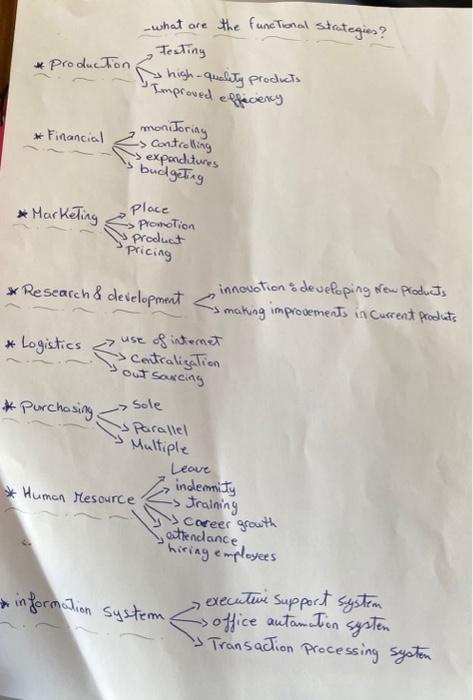 - what are the functional strategies?
* Production
Testing
high-quality products
Improved efficiency
* Financial
monitoring
Controlling
expenditures
budgeting
* Marketing
Place
Promotion
product
Pricing
* Research & development
innovation & developing new products
making improvements in current products
* Logistics
use of internet
Centralization
outsourcing
* Purchasing
Sole
Parallel
Multiple
* Human resource
Leave
indemnity
training
career growth
attendance
hiring employees
* information system
executive support system
office automation system
Transaction processing system